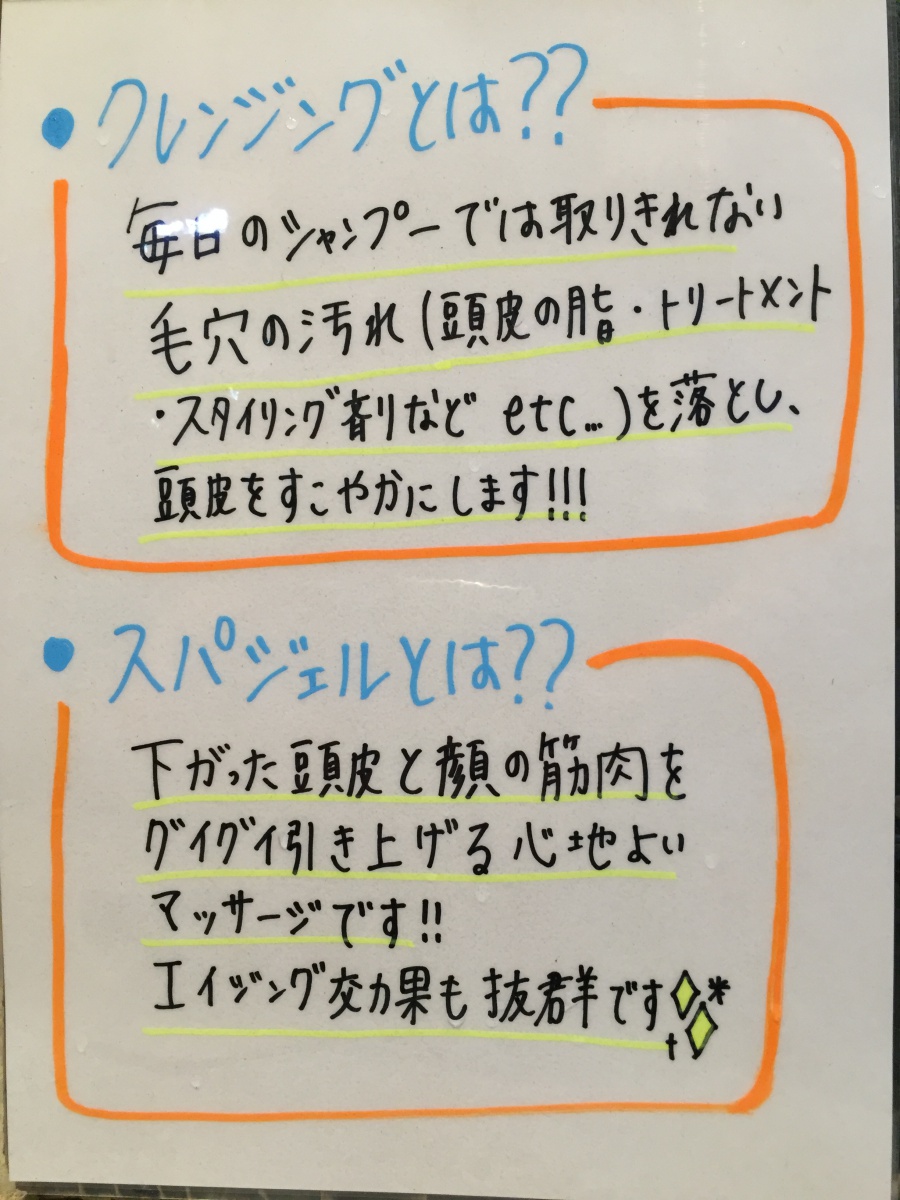 • クレンジングとは??
毎日のシャンプーでは取りきれない
毛穴の汚れ(頭皮の脂・トリートメント
・スタイリング剤などetc...)を落とし、
頭皮をすこやかにします!!!
• スパジェルとは??
下がった頭皮と顔の筋肉を
グイグイ引き上げる心地よい
マッサージです!!
エイジング効果も抜群です